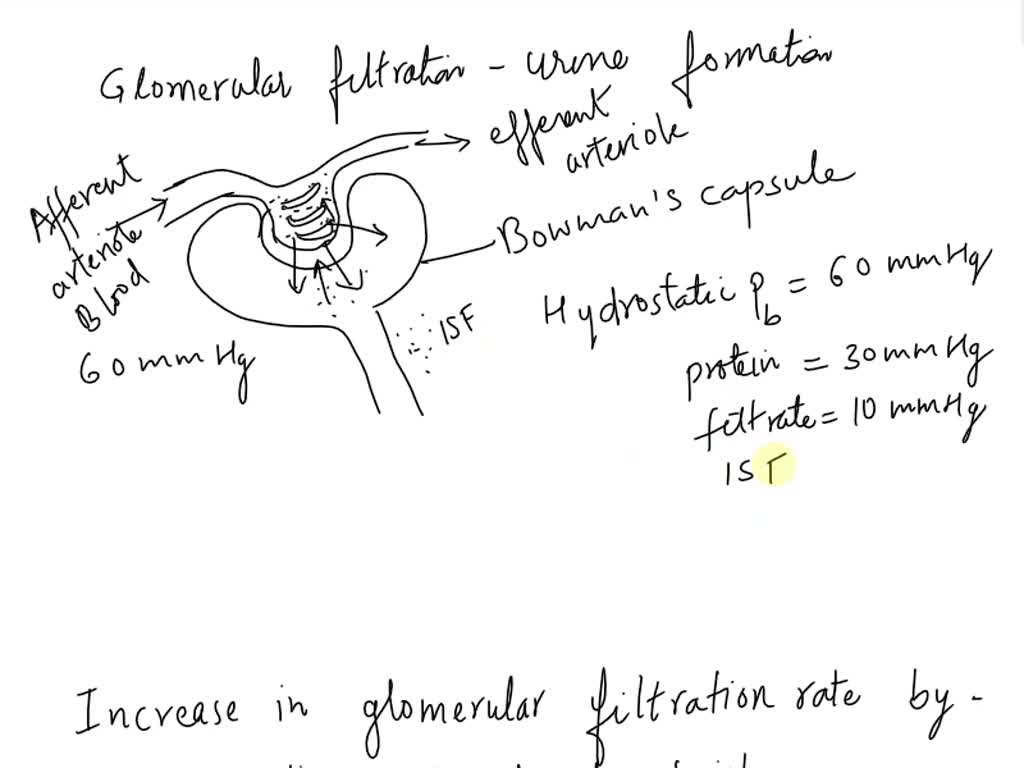 Glomerular filtration - urine formation
efferent
arteriole
Afferent
arteriole
Blood
60 mmHg
Bowman's capsule
ISF
Hydrostatic Pb = 60 mmHg
protein = 30 mmHg
filtrate = 10 mmHg
IS
Increase in glomerular filtration rate by -